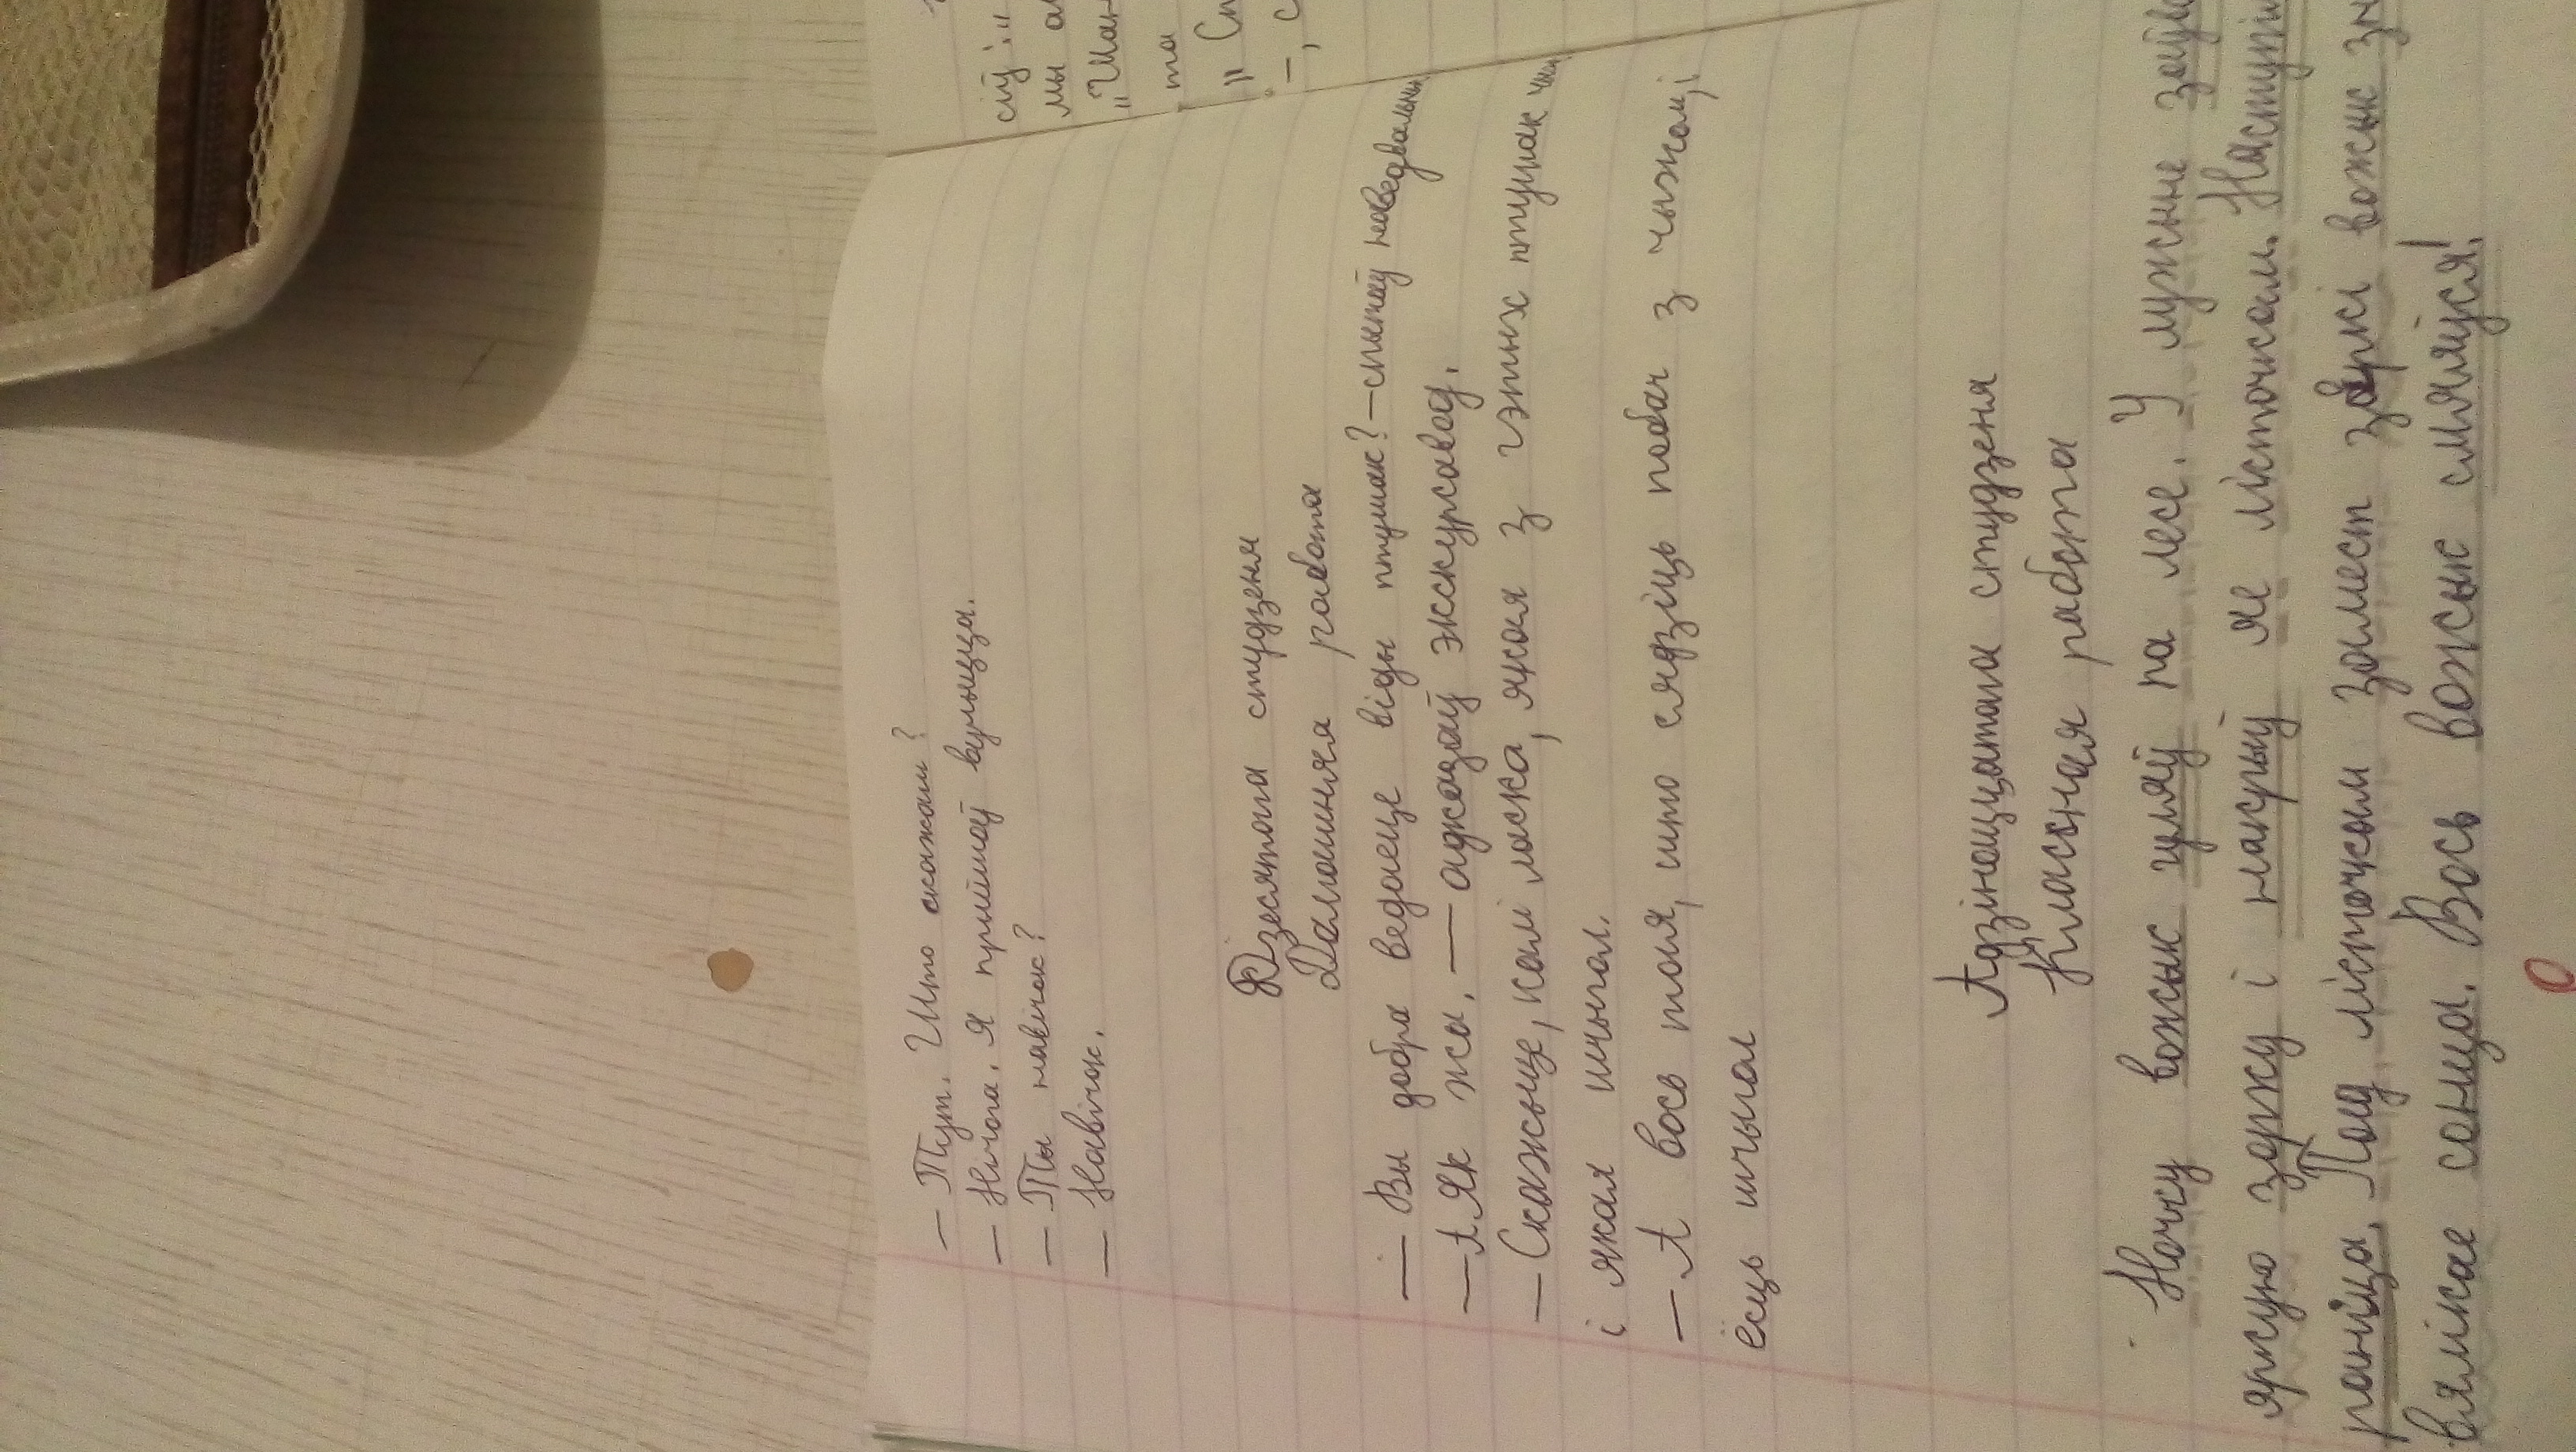 — Тут. Што скажаш?
— Нічога. Я прыйшоў вучыцца.
— Ты навічок?
— Навічок.
Дзесятага студзеня
Дамашняя работа
— Вы добра ведаеце віды птушак? — спытаў наведвальнік
— А як жа, — адказаў экскурсавод.
— Скажыце, калі ласка, якая з гэтых птушак чыж
і якая шчыгол.
— А вось тая, што сядзіць побач з чыжом, і
ёсць шчыгол
Адзінаццатага студзеня
Класная работа
Ночку вожык гуляў па лесе. У лужыне
яркую зорку і накрыў яе лісточкам.
раніца. Пад лісточкам замест зоркі вожык
вялікае сонца. Вось вожык смяяўся!
сцў:"
мы
та